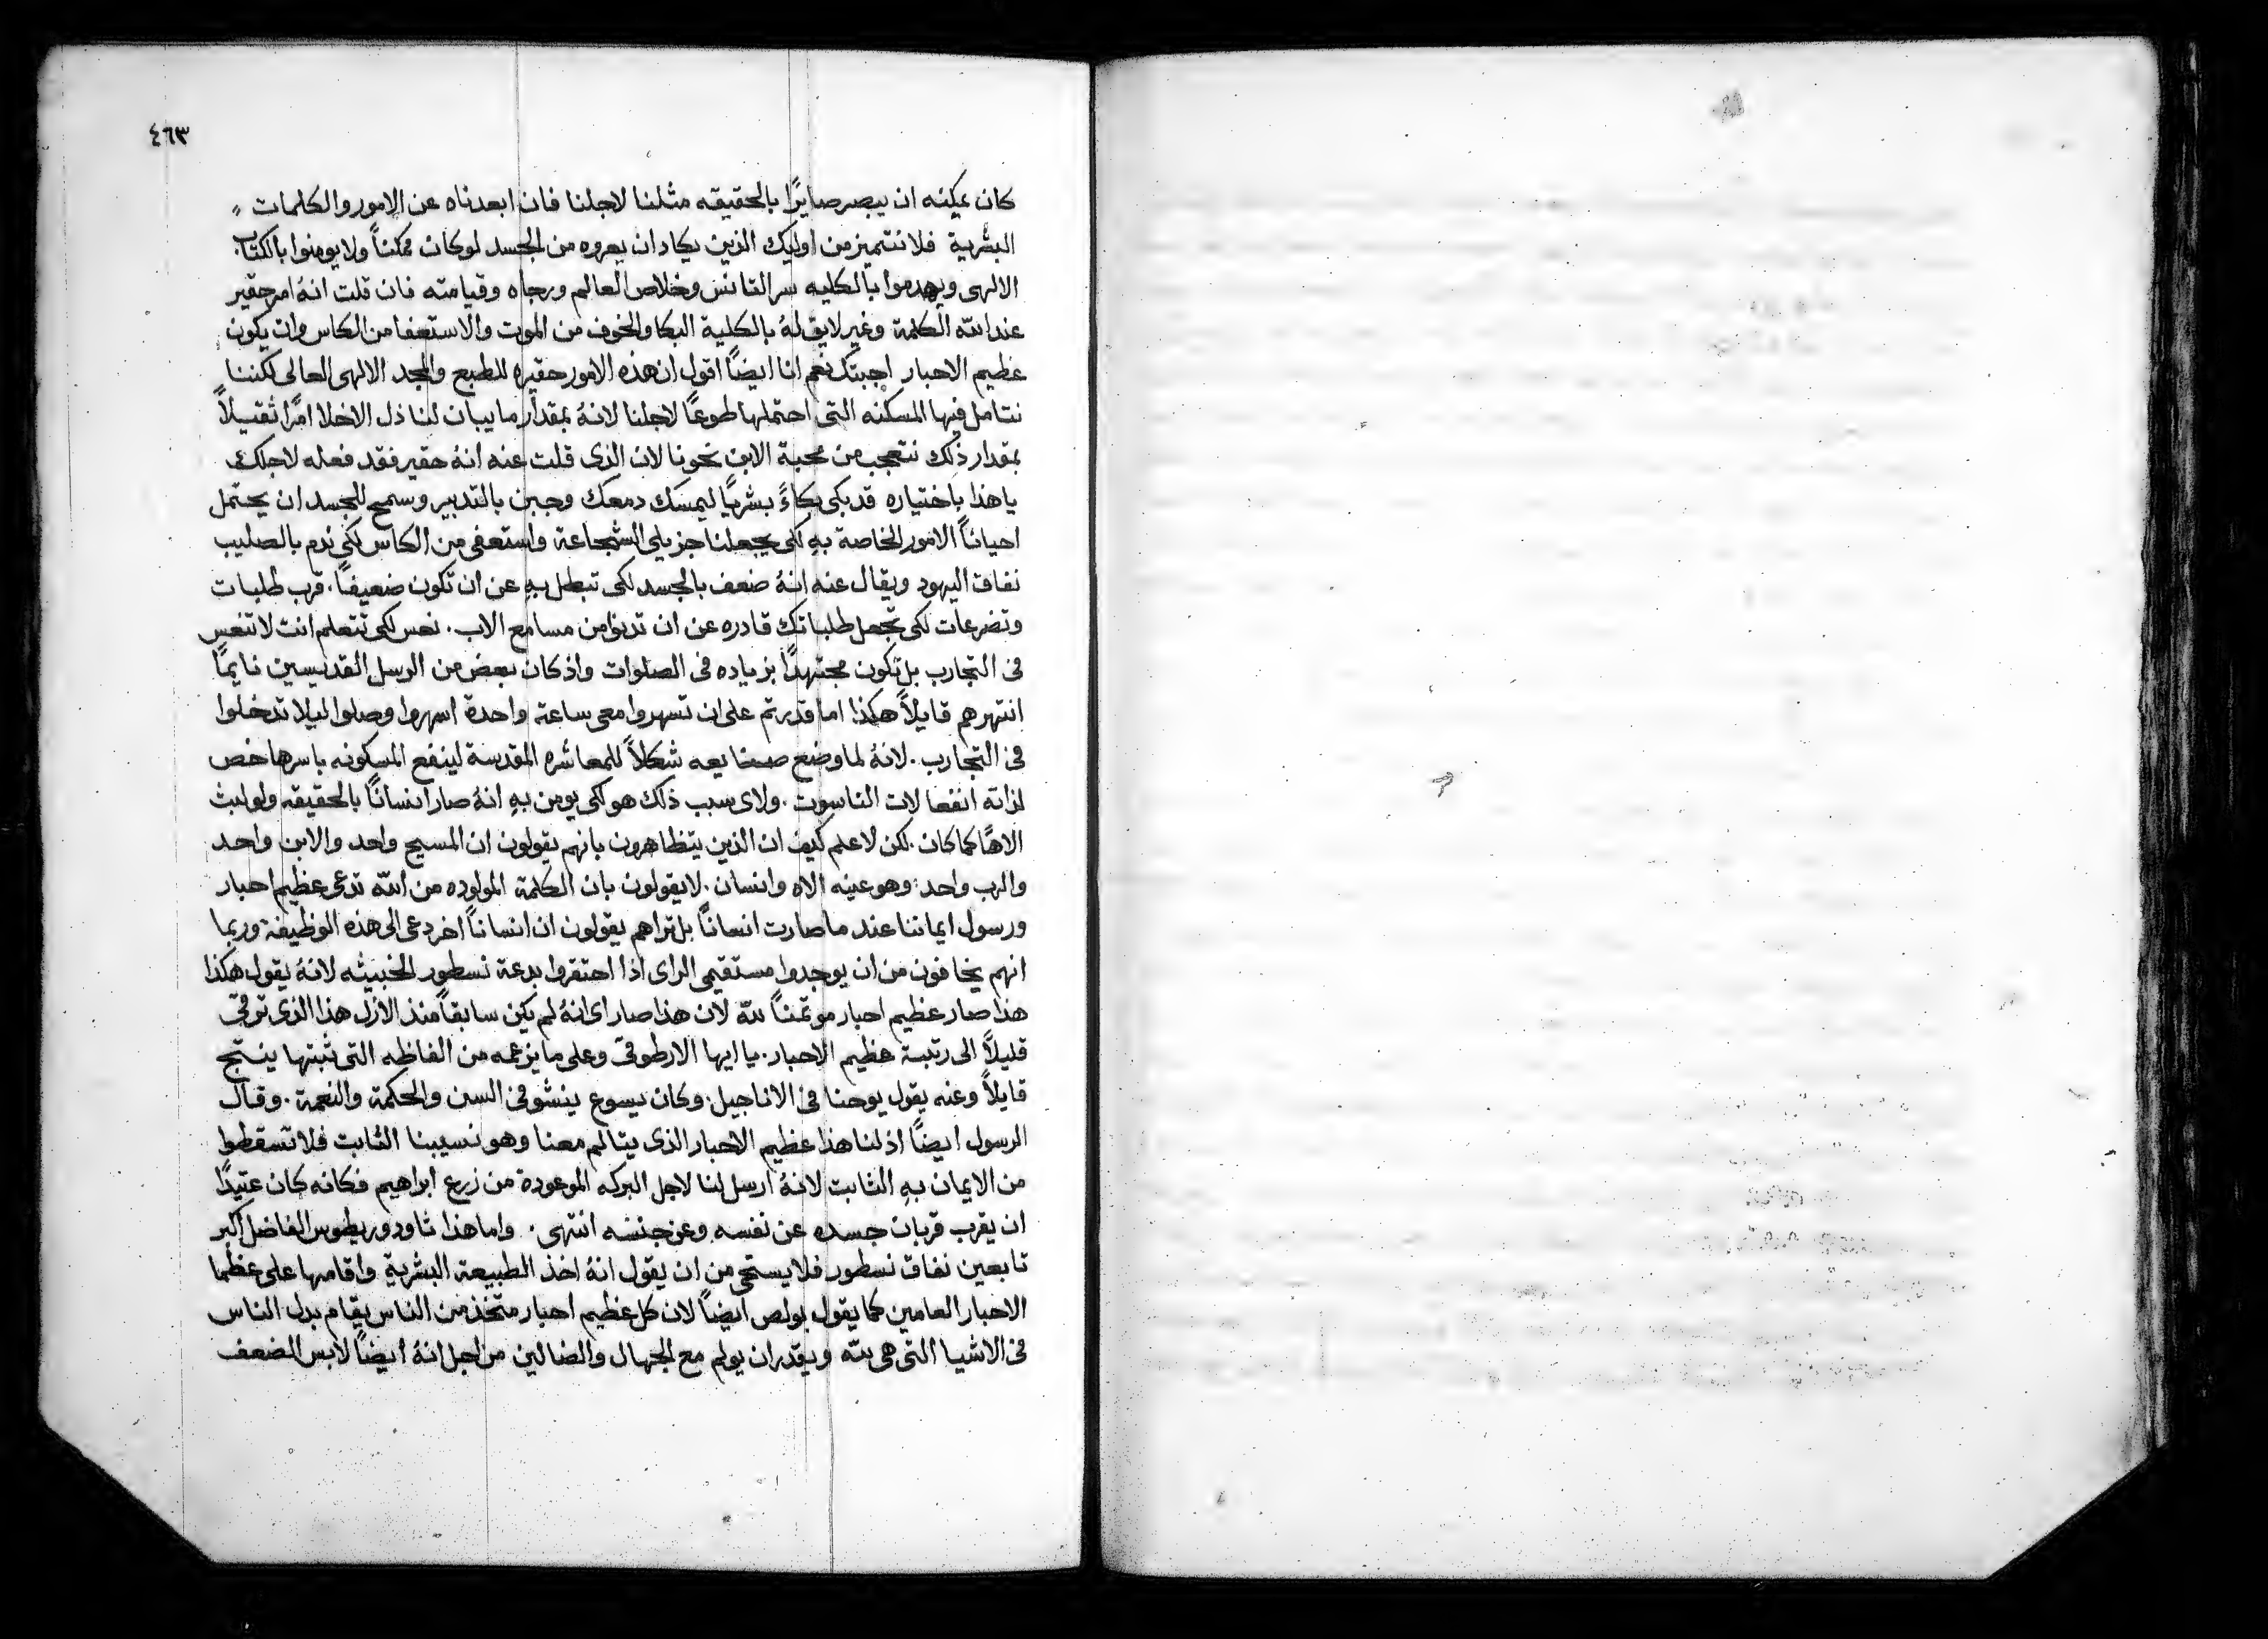 ٤٦٣
كان يمكنه ان يبصر صايرًا بالحقيقه مثلنا لاجلنا فان ابعدناه عن الامور والكلمات
البشرية فلا نتميز من اوليك الذين يكاد ان يعروه من الجسد لو كان ممكناً ولا يومنوا بالكتاب
الالهى ويهدموا بالكليه سر التانس وخلاص العالم ورجاه وقيامته فان قلت انهُ امر حقير
عند الله الكلمة وغير لايق لهُ بالكلية البكا والخوف من الموت والاستعفا من الكاس وان يكون
عظيم الاحبار اجبتك نعم انا ايضًا اقول ان هذه الامور حقيره للطبع والمجد الالهى العالى لكننا
نتامل فيها المسكنه التى احتملها طوعًا لاجلنا لانهُ بمقدار ما يبان لنا ذل الاخلا امرًا ثقيلاً
بمقدار ذلك نتعجب من محبة الابن نحونا لان الذى قلت عنه انهُ حقير فقد فعله لاجلك
يا هذا باختياره قد بكى بكاءً بشريًا ليمسك دمعك وجبن بالتدبير وسمح للجسد ان يحتمل
احيانًا الامور الخاصة بهِ لكى يجعلنا جزيلى الشجاعة واستعفى من الكاس لكى ندم بالصليب
نفاق اليهود ويقال عنه انهُ ضعف بالجسد لكى تبطل بهِ عن ان تكون ضعيفًا. قرب طلبات
وتضرعات لكى تجعل طلباتك قادره عن ان تدنو من مسامع الاب. نعس لكى تتعلم انت لا تنعس
فى التجارب بل تكون مجتهدًا بزياده فى الصلوات واذ كان بعض من الرسل القديسين نايمًا
انتهرهم قايلاً هكذا اما قدرتم على ان تسهروا معى ساعة واحدة اسهروا وصلوا ليلا تدخلوا
فى التجارب. لانهُ لما وضع صنايعه شكلاً للمعاشره المقدسة لينفع المسكونه باسرها خص
لذاته انفعالات الناسوت. ولاى سبب ذلك هو لكى يومن بهِ انهُ صار انسانًا بالحقيقه ولو لبث
الاهًا كما كان. لكن لا علم كيف ان الذين يتظاهرون بانهم يقولون ان المسيح واحد والابن واحد
والرب واحد وهو عينه الاه وانسان. لا يقولون بان الكلمة المولوده من الله تدعى عظيم احبار
ورسول ايماننا عند ما صارت انسانًا بل تراهم يقولون ان انسانًا اخر دعى الى هذه الوظيفة وربما
انهم يخافون من ان يوجدوا مستقيمى الراى اذا احتقروا بدعة نسطور الخبيثه لانهُ يقول هكذا
هذا صار عظيم احبار موتمنًا لله لان هذا صار اى انهُ لم يكن سابقاً منذ الازل هذا الذى ترقى
قليلاً الى رتبة عظيم الاحبار. يا ايها الارطوقى وعلى ما يزعمه من الفاظه التى ثبتها ينتج
قايلاً وعنه يقول يوحنا فى الاناجيل. وكان يسوع ينشو فى السن والحكمة والنعمة. وقال
الرسول ايضًا اذ لنا هذا عظيم الاحبار الذى يتالم معنا وهو نسيبنا الثابت فلا تسقطوا
من الايمان بهِ الثابت لانهُ ارسل لنا لاجل البركه الموعودة من زرع ابراهيم فكانه كان عتيدًا
ان يقرب قربان جسده عن نفسه وعن جنسه انتهى. واما هذا ثاودوريطوس الفاضل اكبر
تابعين نفاق نسطور فلا يستحى من ان يقول انهُ اخذ الطبيعة البشرية واقامها على عظما
الاحبار العامين كما يقول بولص ايضًا لان كل عظيم احبار متخذ من الناس يقام بدل الناس
فى الاشيا التى هى لله ويقدر ان يولم مع الجهال والضالين من اجل انهُ ايضًا لابس الضعف